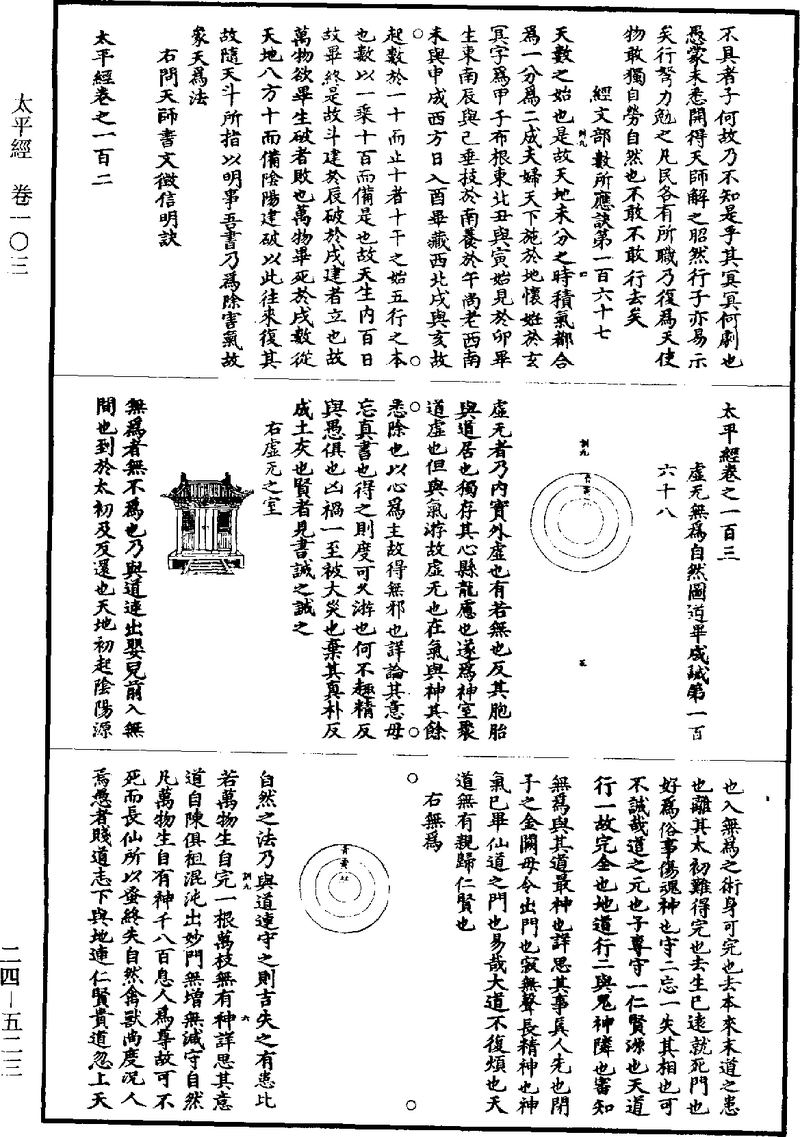 太平經　卷一〇三
二四－五二三
不具者子何故乃不知是乎其冥冥何劇也
愚蒙未悉開得天師解之昭然行子亦易示
矣行努力勉之凡民各有所職乃復爲天使
物敢獨自勞自然也不敢不敢行去矣
經文部數所應訣第一百六十七
天數之始也是故天地未分之時積氣都合
爲一分爲二成夫婦天下施於地懷姙於玄
冥字爲甲子布根東北丑與寅始見於卯畢
生東南辰與巳垂枝於南養於午尚老西南
未與申成西方日入酉畢藏西北戌與亥故
起數於一十而止十者十干之始五行之本
也數以一乘十百而備是也故天生内百日
故畢終是故斗建於辰破於戌建者立也故
萬物欲畢生破者敗也萬物畢死於戌數從
天地八方十而備陰陽建破以此往來復其
故隨天斗所指以明事吾書乃爲除害氣故
家天爲法
右問天師書文徵信明訣
太平經卷之一百二
太平經卷之一百三
虛无無爲自然圖道畢成誡第一百
六十八
虛无者乃内實外虛也有若無也反其胞胎
與道居也獨存其心縣龍慮也遂爲神室聚
道虛也但與氣游故虛无也在氣與神其餘
悉除也以心爲主故得無邪也詳論其意毋
忘真書也得之則度可久游也何不趣精反
與愚俱也凶禍一至被大災也棄其真朴反
成土灰也賢者見書誡之誡之
右虛无之室
無爲者無不爲也乃與道連出嬰兒前入無
間也到於太初乃反還也天地初起陰陽源
也入無爲之術身可完也去本來末道之患
也離其太初難得完也去生已遠就死門也
好爲俗事傷魂神也守二忘一失其相也可
不誡哉道之元也子專守一仁賢源也天道
行一故完全也地道行二與鬼神隣也審知
無爲與其道最神也詳思其事真人先也閉
子之金闕毋令出門也寂無聲長精神也神
氣已畢仙道之門也易哉大道不復煩也天
道無有親歸仁賢也
右無爲
自然之法乃與道連守之則吉失之有患比
若萬物生自完一根萬枝無有神詳思其意
道自陳俱祖混沌出妙門無增無減守自然
凡萬物生自有神千八百息人爲尊故可不
死而長仙所以蚤終失自然禽獸尚度况人
焉愚者賤道志下與地連仁賢貴道忽上天